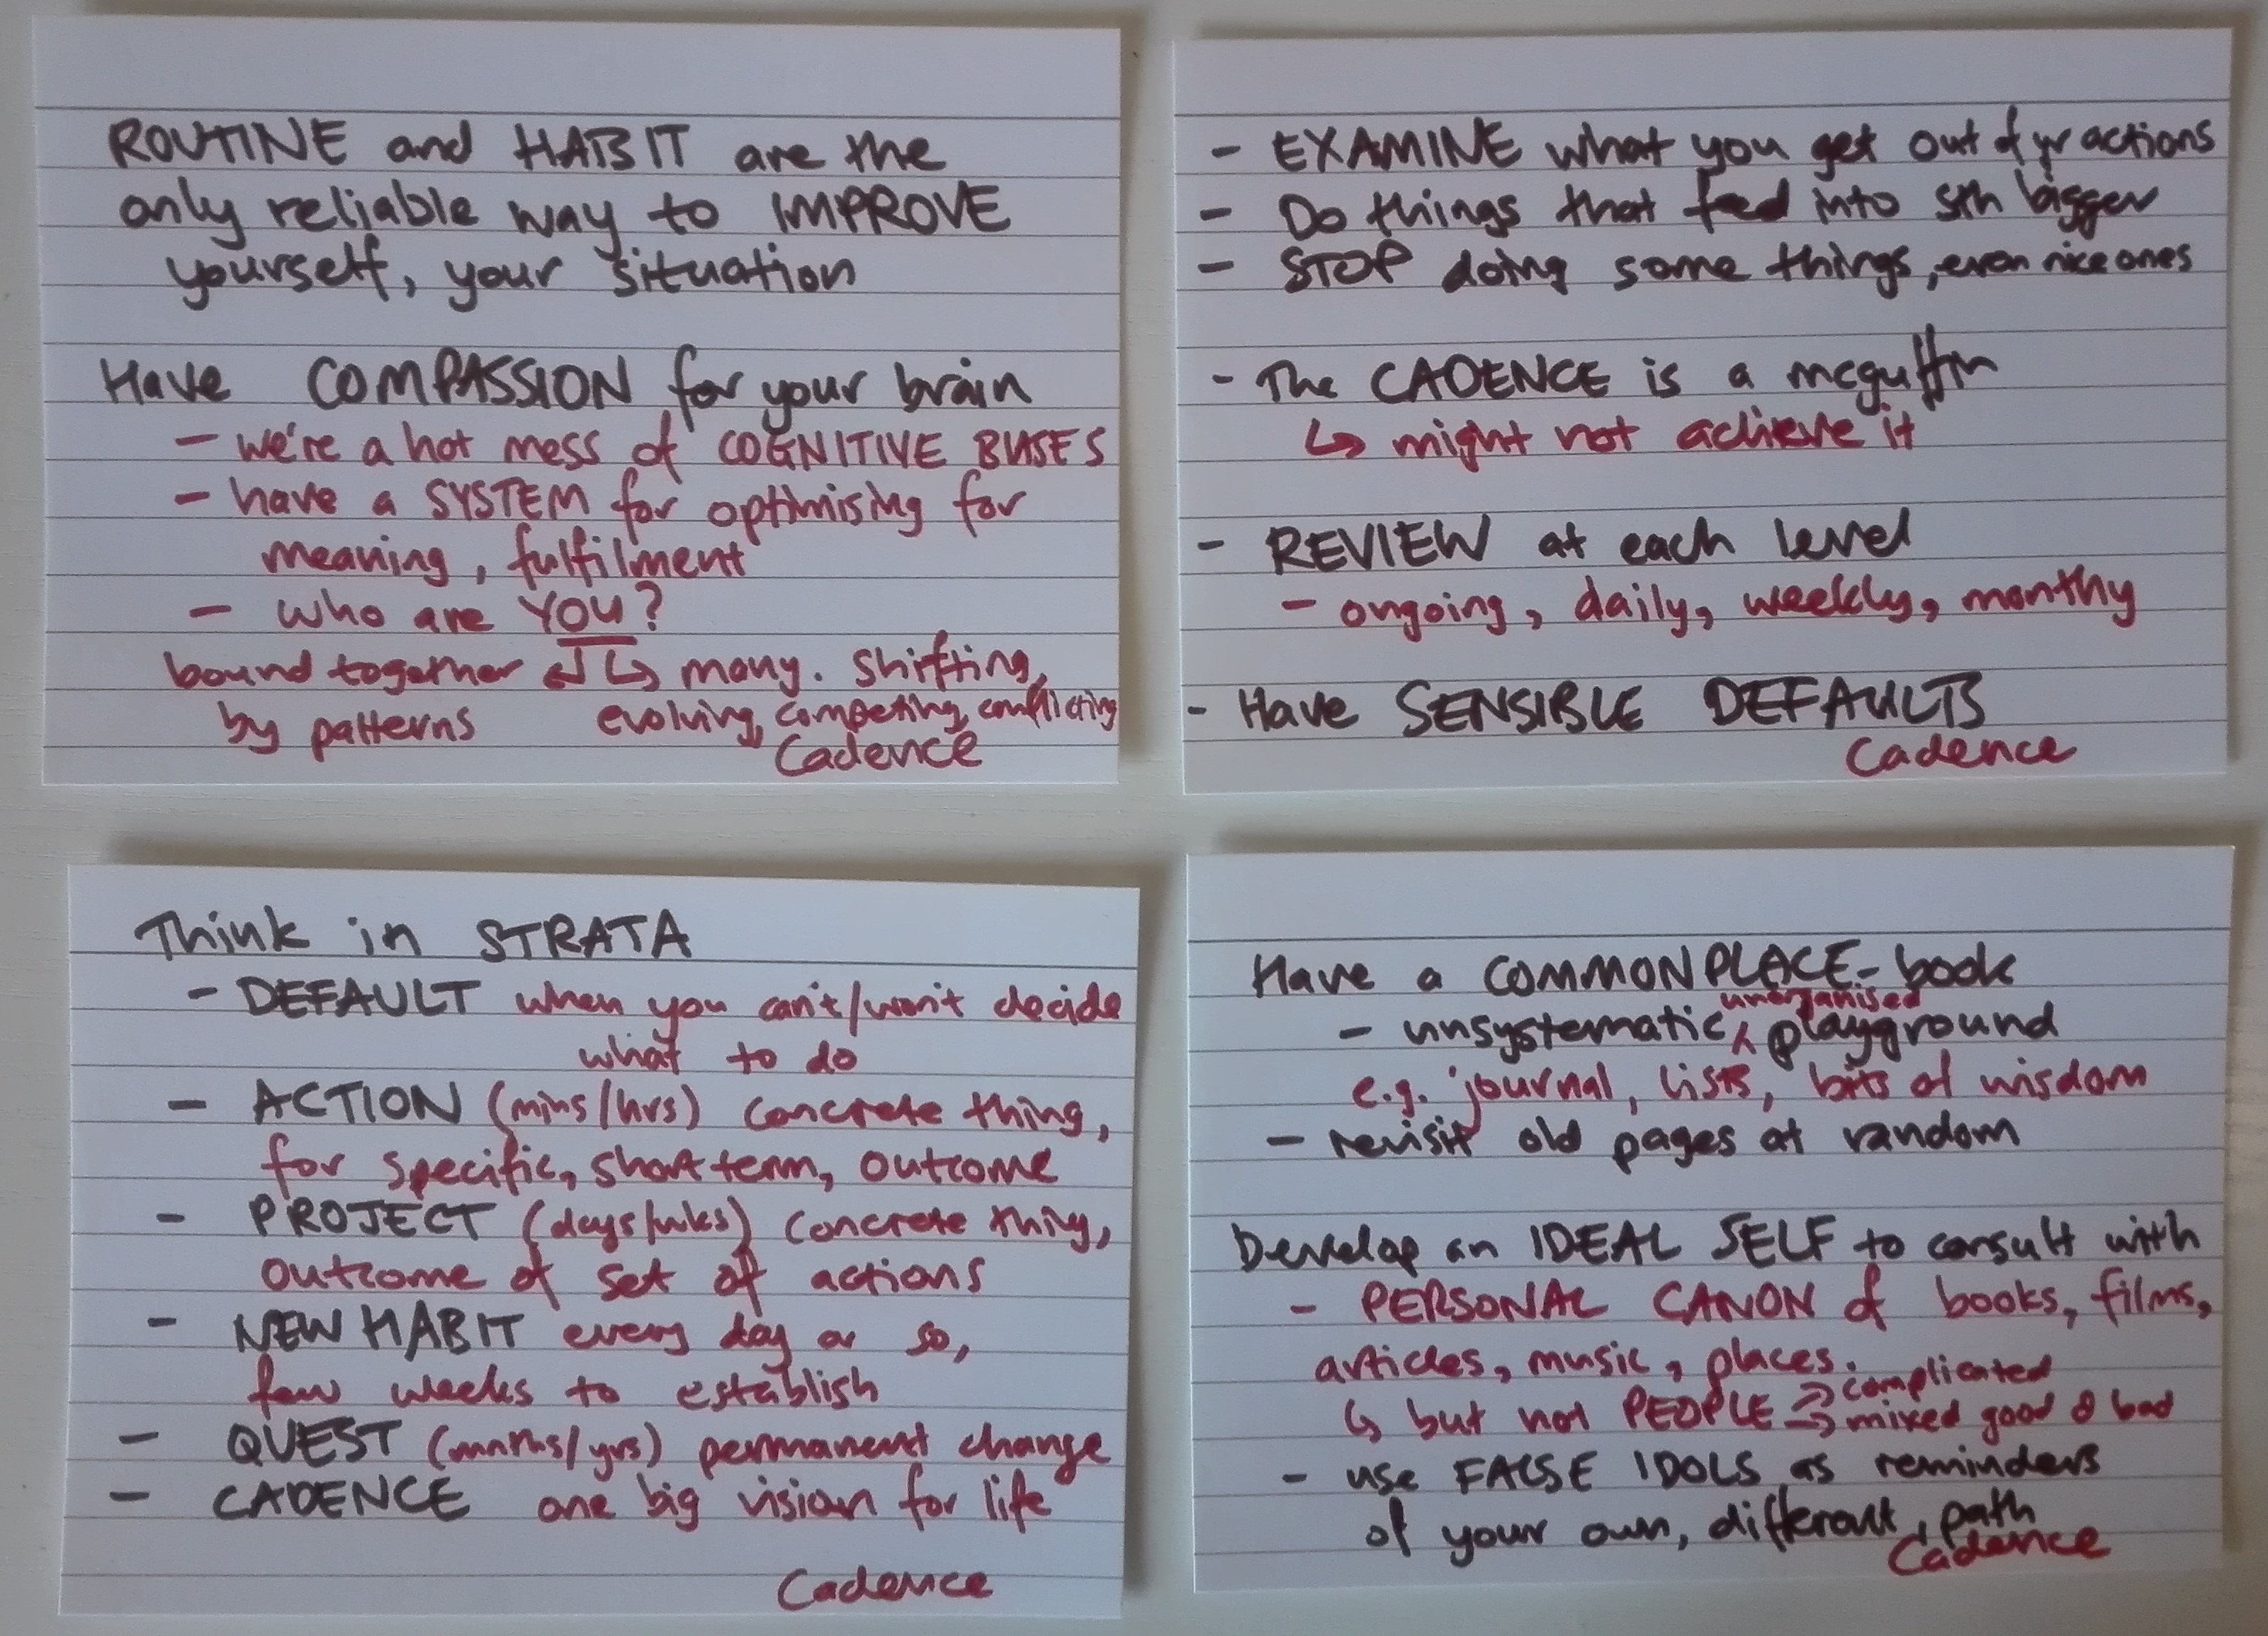 ROUTINE and HABIT are the
only reliable way to IMPROVE
yourself, your situation
Have COMPASSION for your brain
- we're a hot mess of COGNITIVE BIASES
- have a SYSTEM for optimising for
meaning, fulfilment
- who are YOU?
bound together ↲ ↳ many. shifting,
by patterns evolving, competing, conflicting
Cadence
- EXAMINE what you get out of yr actions
- Do things that feed into sth bigger
- STOP doing some things, even nice ones
- The CADENCE is a mcguffin
↳ might not achieve it
- REVIEW at each level
- ongoing, daily, weekly, monthy
- Have SENSIBLE DEFAULTS
Cadence
Think in STRATA
- DEFAULT when you can't/won't decide
what to do
- ACTION (mins/hrs) concrete thing,
for specific, short term, outcome
- PROJECT (days/wks) concrete thing,
outcome of set of actions
- NEW HABIT every day or so,
few weeks to establish
- QUEST (mnths/yrs) permanent change
- CADENCE one big vision for life
Cadence
Have a COMMONPLACE-book
- unsystematic, unorganised playground
e.g. journal, lists, bits of wisdom
- revisit old pages at random
Develop an IDEAL SELF to consult with
- PERSONAL CANON of books, films,
articles, music, places.
↳ but not PEOPLE → complicated
→ mixed good & bad
- use FALSE IDOLS as reminders
of your own, different, path
Cadence